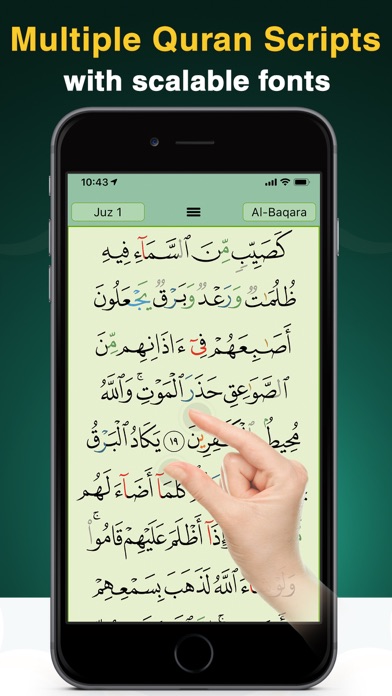 Multiple Quran Scripts
with scalable fonts
10:43
Juz 1
Al-Baqara
كَصَيِّبٍ مِّنَ ٱلسَّمَآءِ فِيهِ
ظُلُمَٰتٌ وَرَعْدٌ وَبَرْقٌ يَجْعَلُونَ
أَصَٰبِعَهُمْ فِىٓ ءَاذَانِهِم مِّنَ
ٱلصَّوَٰعِقِ حَذَرَ ٱلْمَوْتِ ۚ وَٱللَّهُ
مُحِيطٌۢ بِٱلْكَٰفِرِينَ ١٩ يَكَادُ ٱلْبَرْقُ
كُلَّمَآ أَضَآءَ لَهُم
أَظْلَمَ عَلَيْهِمْ قَامُوا۟ ۚ
وَلَوْ شَآءَ ٱللَّهُ لَذَهَبَ بِسَمْعِهِمْ